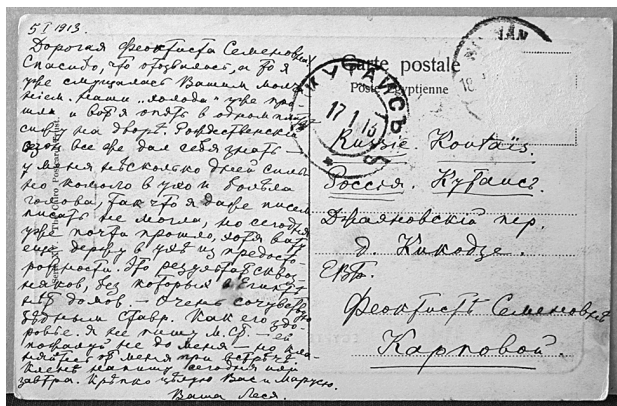 5 I 1913.
Дорогая Феоктиста Семеновна!
Спасибо, что отозвались, а то я
уже смущалась Вашим молча-
нієм. Наши „холода" уже про-
шли и вот я опять в одном пальто
сижу на дворѣ. Рождественскій
сезон все же дал себя знать —
у меня нѣсколько дней сильно
кололо в ухо и болѣла
голова, так что я даже писем
писать не могла, но сегодня
уже почти прошло, хотя вату
еще держу в ухѣ из предосто-
рожности. Это результат сквоз-
няков, без которых в Египтѣ
нѣт домов. — Очень сочувствую
бѣдным Ставр. Как его здо-
ровье. Я не пишу М. — ей
пожалуй не до меня — но кла-
няйтесь от меня при встрѣчѣ.
Кленѣ напишу сегодня или
завтра. Крѣпко цѣлую Вас и Марусю.
Ваша Леся.
Carte postale
Poste égyptienne
КУТАИСЪ
17 1 13
Russie. Koutaïs.
Россія. Кутаисъ.
Джаяновскій пер.
д. Кикодзе.
ЕВБ.
Феоктистѣ Семеновнѣ
Карповой.